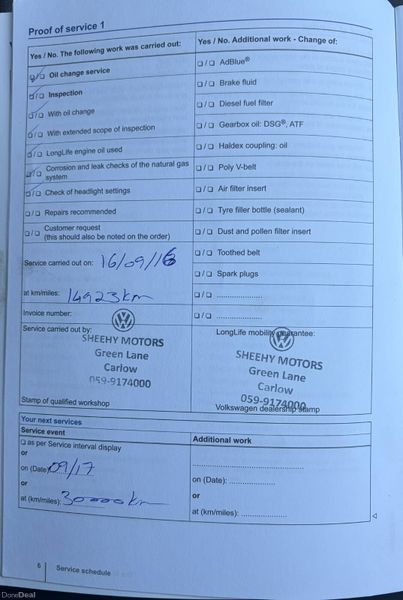 Proof of service 1
Yes / No. The following work was carried out:
Yes / No. Additional work - Change of:
Oil change service
AdBlue®
Inspection
Brake fluid
With oil change
Diesel fuel filter
With extended scope of inspection
Gearbox oil: DSG®, ATF
LongLife engine oil used
Haldex coupling: oil
Corrosion and leak checks of the natural gas
system
Poly V-belt
Check of headlight settings
Air filter insert
Repairs recommended
Tyre filler bottle (sealant)
Customer request
(this should also be noted on the order)
Dust and pollen filter insert
Service carried out on: 16/09/16
Toothed belt
Spark plugs
at km/miles: 14923km
Invoice number:
Service carried out by:
LongLife mobility guarantee:
SHEEHY MOTORS
Green Lane
Carlow
059-9174000
SHEEHY MOTORS
Green Lane
Carlow
059-9174000
Stamp of qualified workshop
Volkswagen dealership stamp
Your next services
Service event
Additional work
as per Service interval display
or
on (Date): 09/17
on (Date): ....................
or
or
at (km/miles): 30000km
at (km/miles): ..................
6 Service schedule
DoneDeal